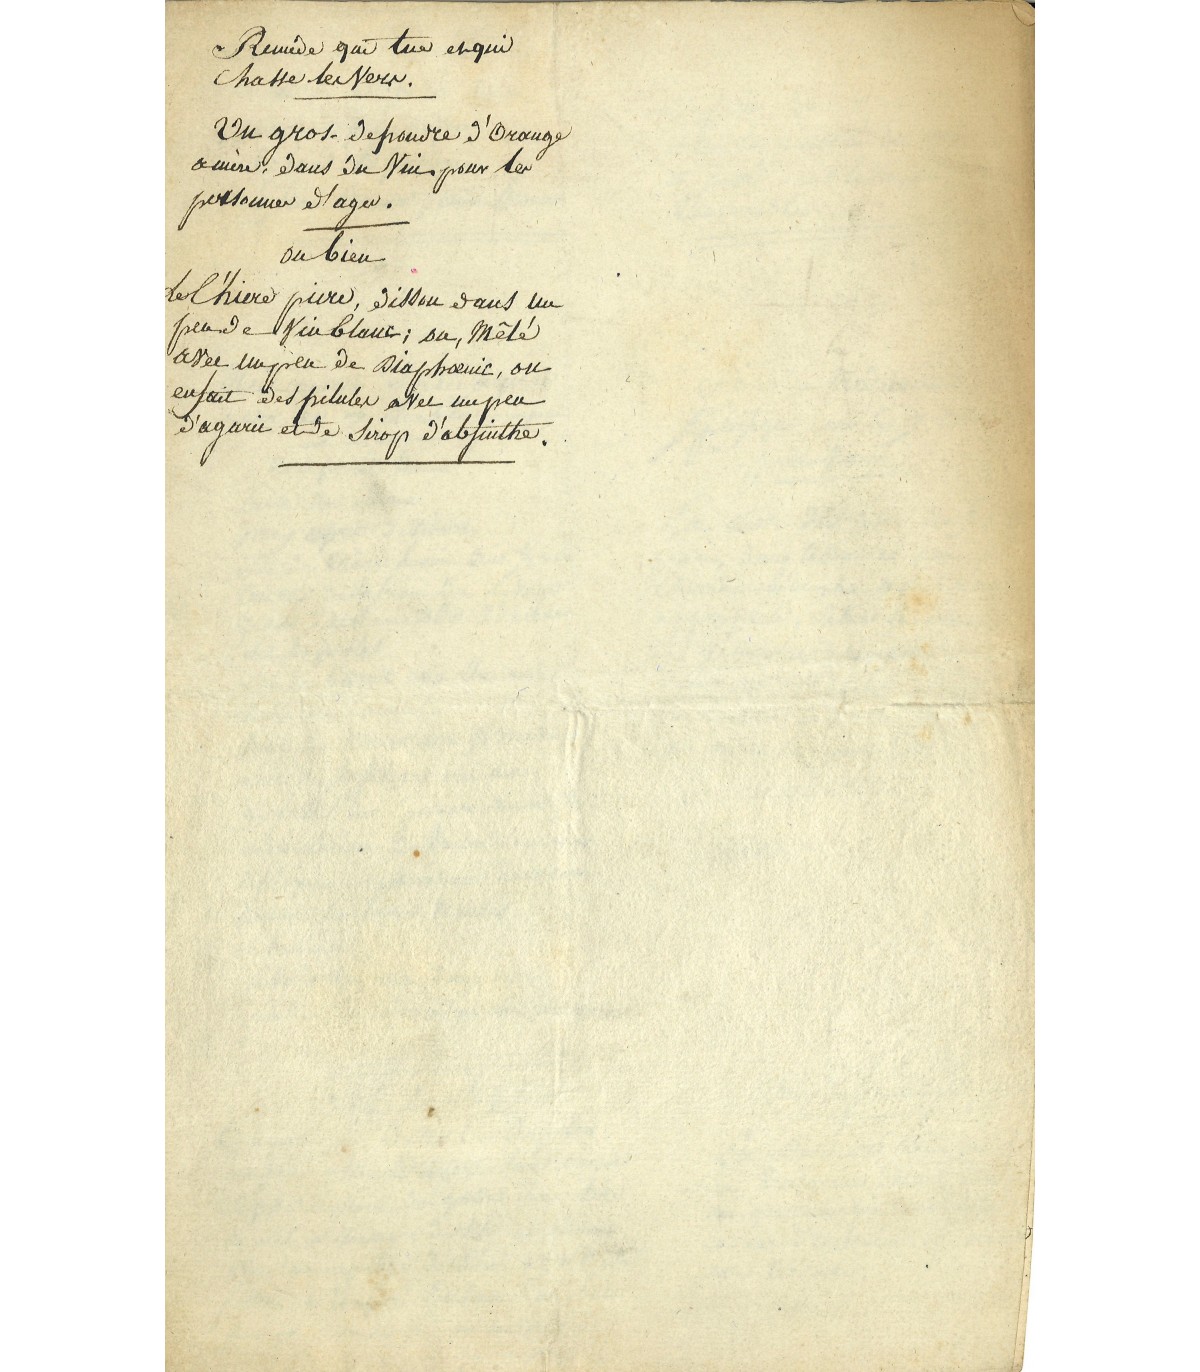 Remède qui tue et qui
Chasse les Vers.
Un gros de poudre d'Orange
amère, dans du Vin, pour les
personnes d'agés.
ou bien
de l'hiere picre, dissou dans un
peu de Vin blanc; ou, Mêlé
avec un peu de Diaphœnic, on
en fait des pilules avec un peu
d'agaric et de Sirop d'absinthe.